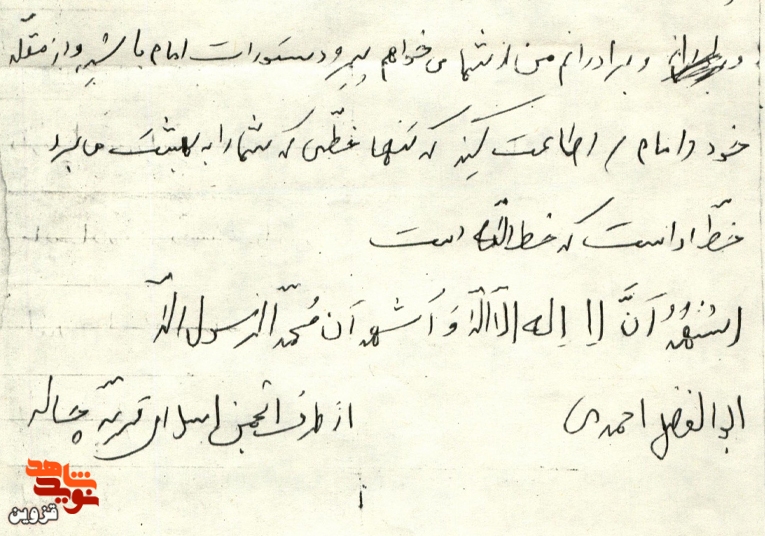 و برادرانم من از شما می‌خواهم پیرو دستورات امام باشید و از مقلد
خود و امام اطاعت کنید که تنها خطی که شما را به بهشت می‌برد
خط او است که خط الله است
اشهد أن لا إله إلا الله و أشهد أن محمد الرسول الله
ابوالفضل احمدی
از طرف انجمن اسلامی قریه چاله
شاهد
نوید
قزوین